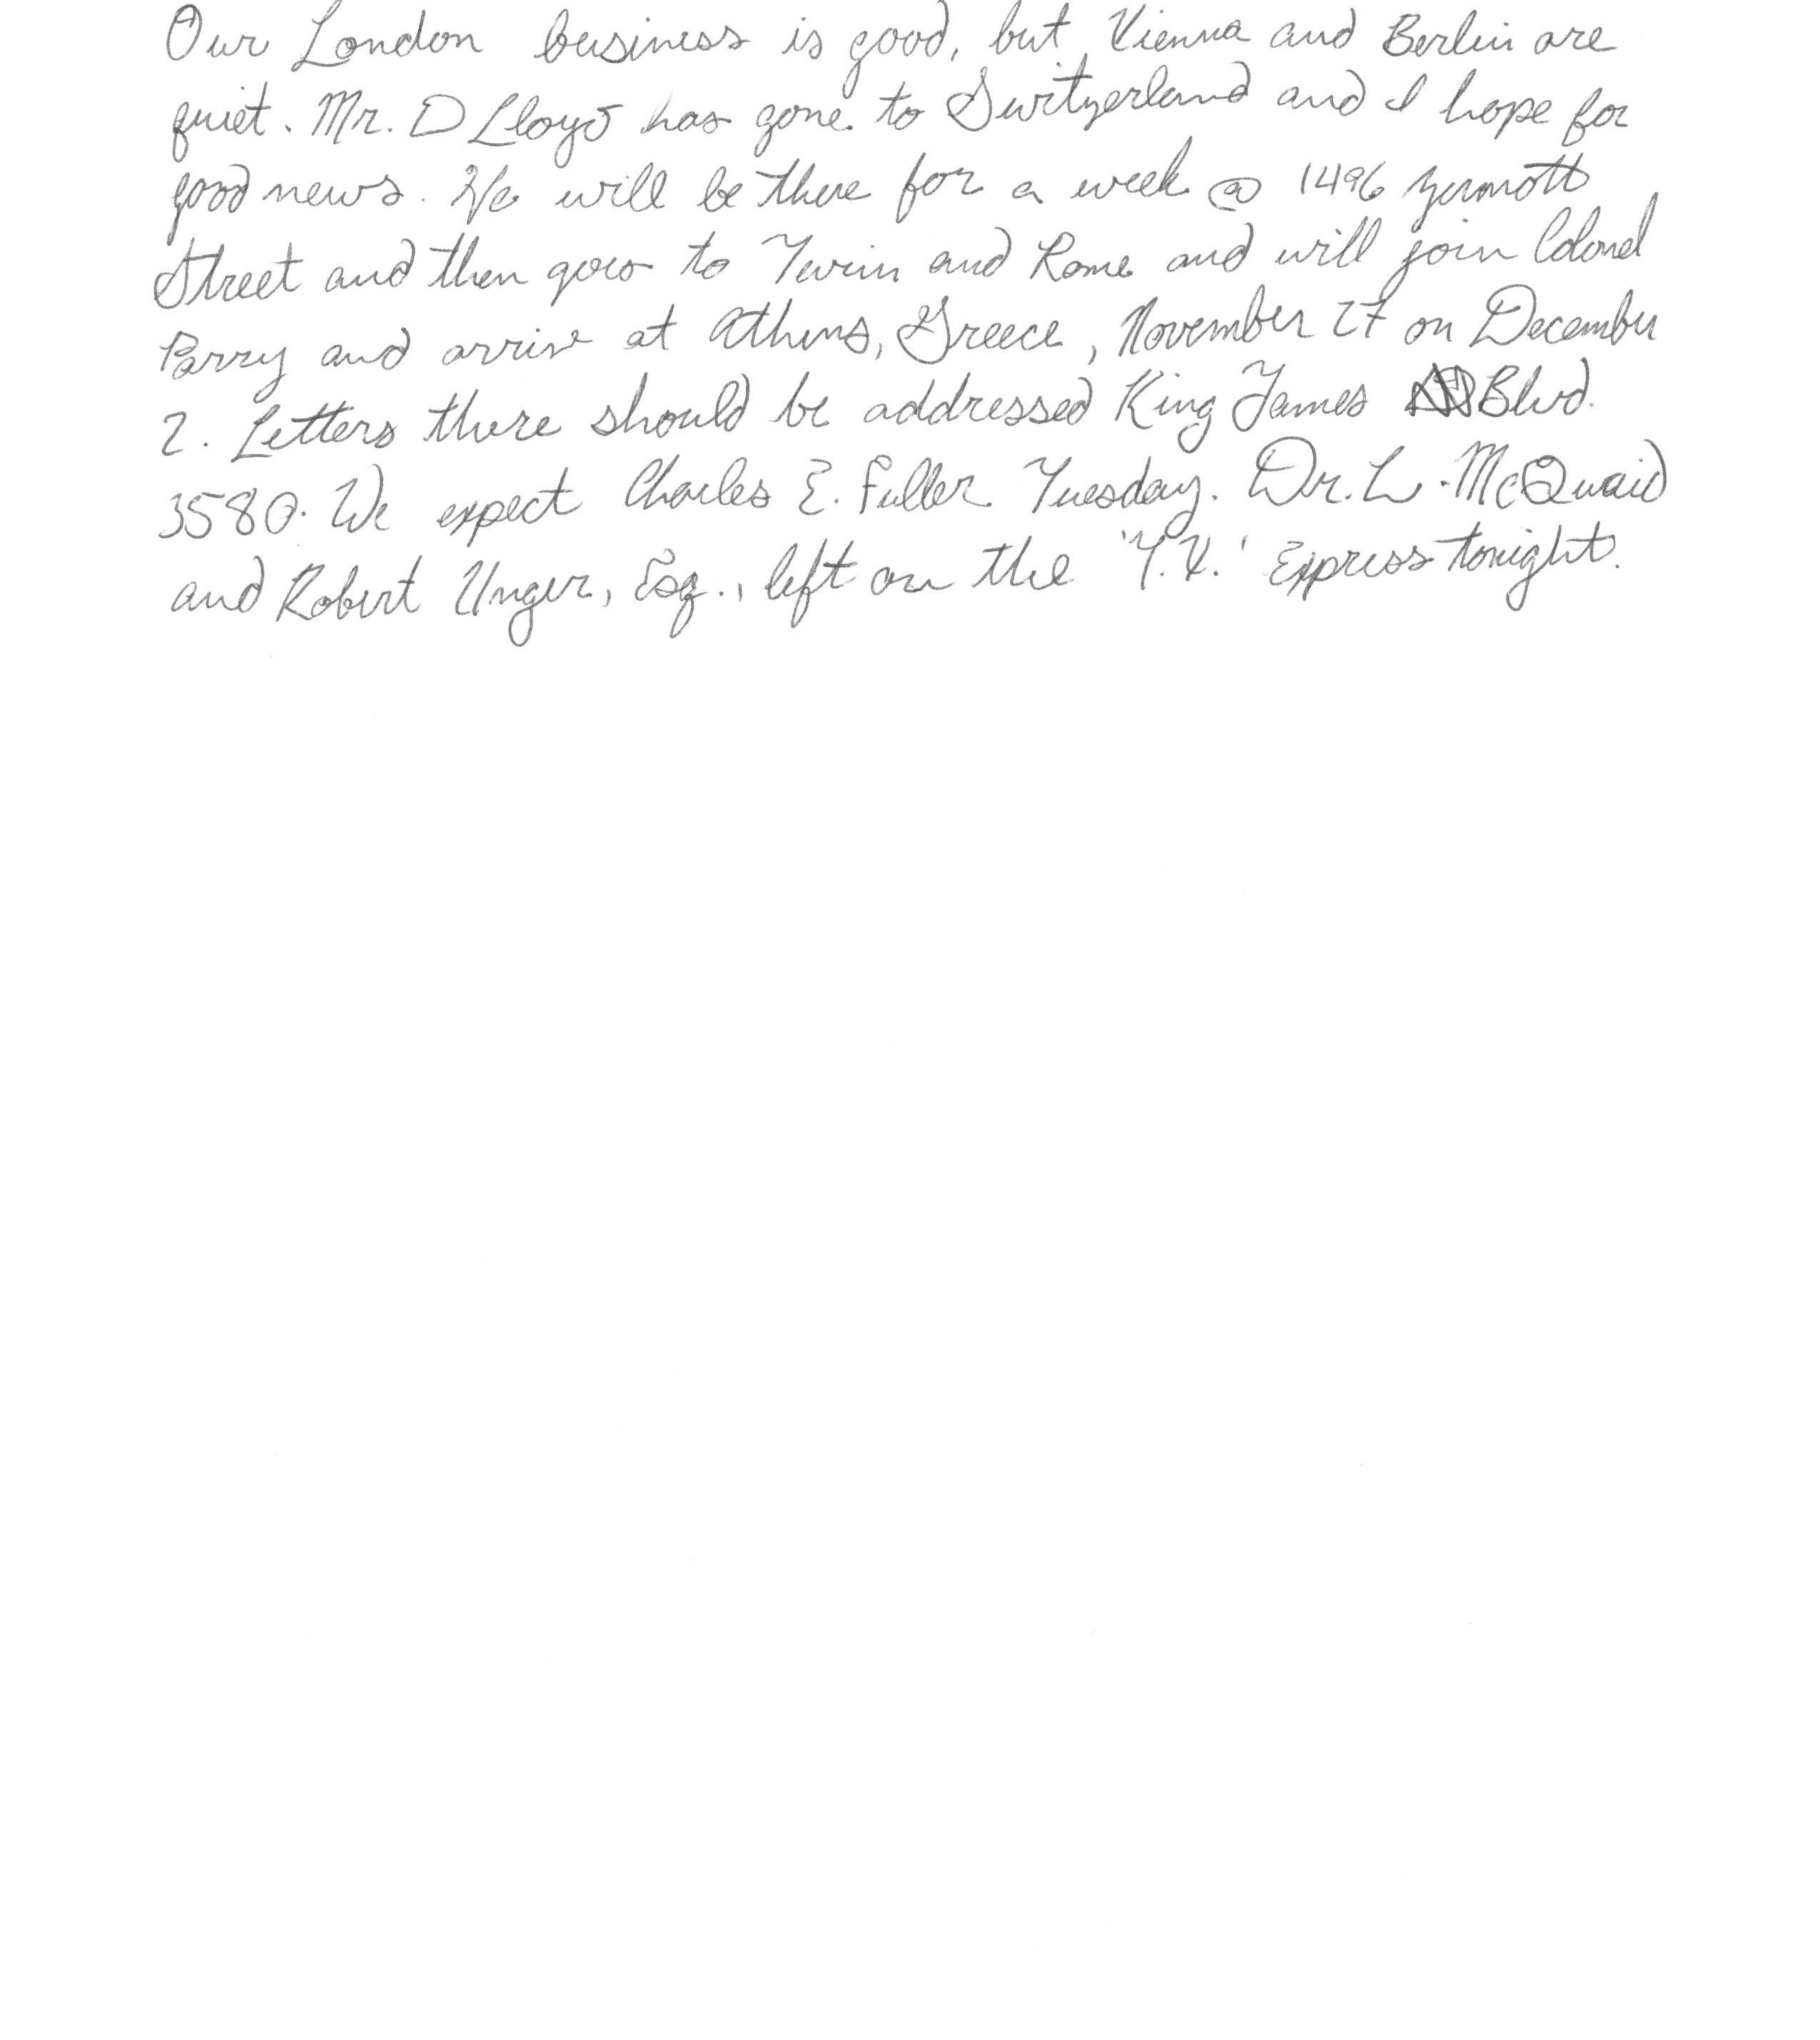 Our London business is good, but Vienna and Berlin are
quiet. Mr. D Lloyd has gone to Switzerland and I hope for
good news. He will be there for a week @ 1496 Zermott
Street and then goes to Turin and Rome and will join Colonel
Parry and arrive at Athens, Greece, November 27 on December
2. Letters there should be addressed King James Blvd.
3580. We expect Charles E. Fuller Tuesday. Dr. L. McQuaid
and Robert Unger, Esq., left on the 'Y.X.' Express tonight.